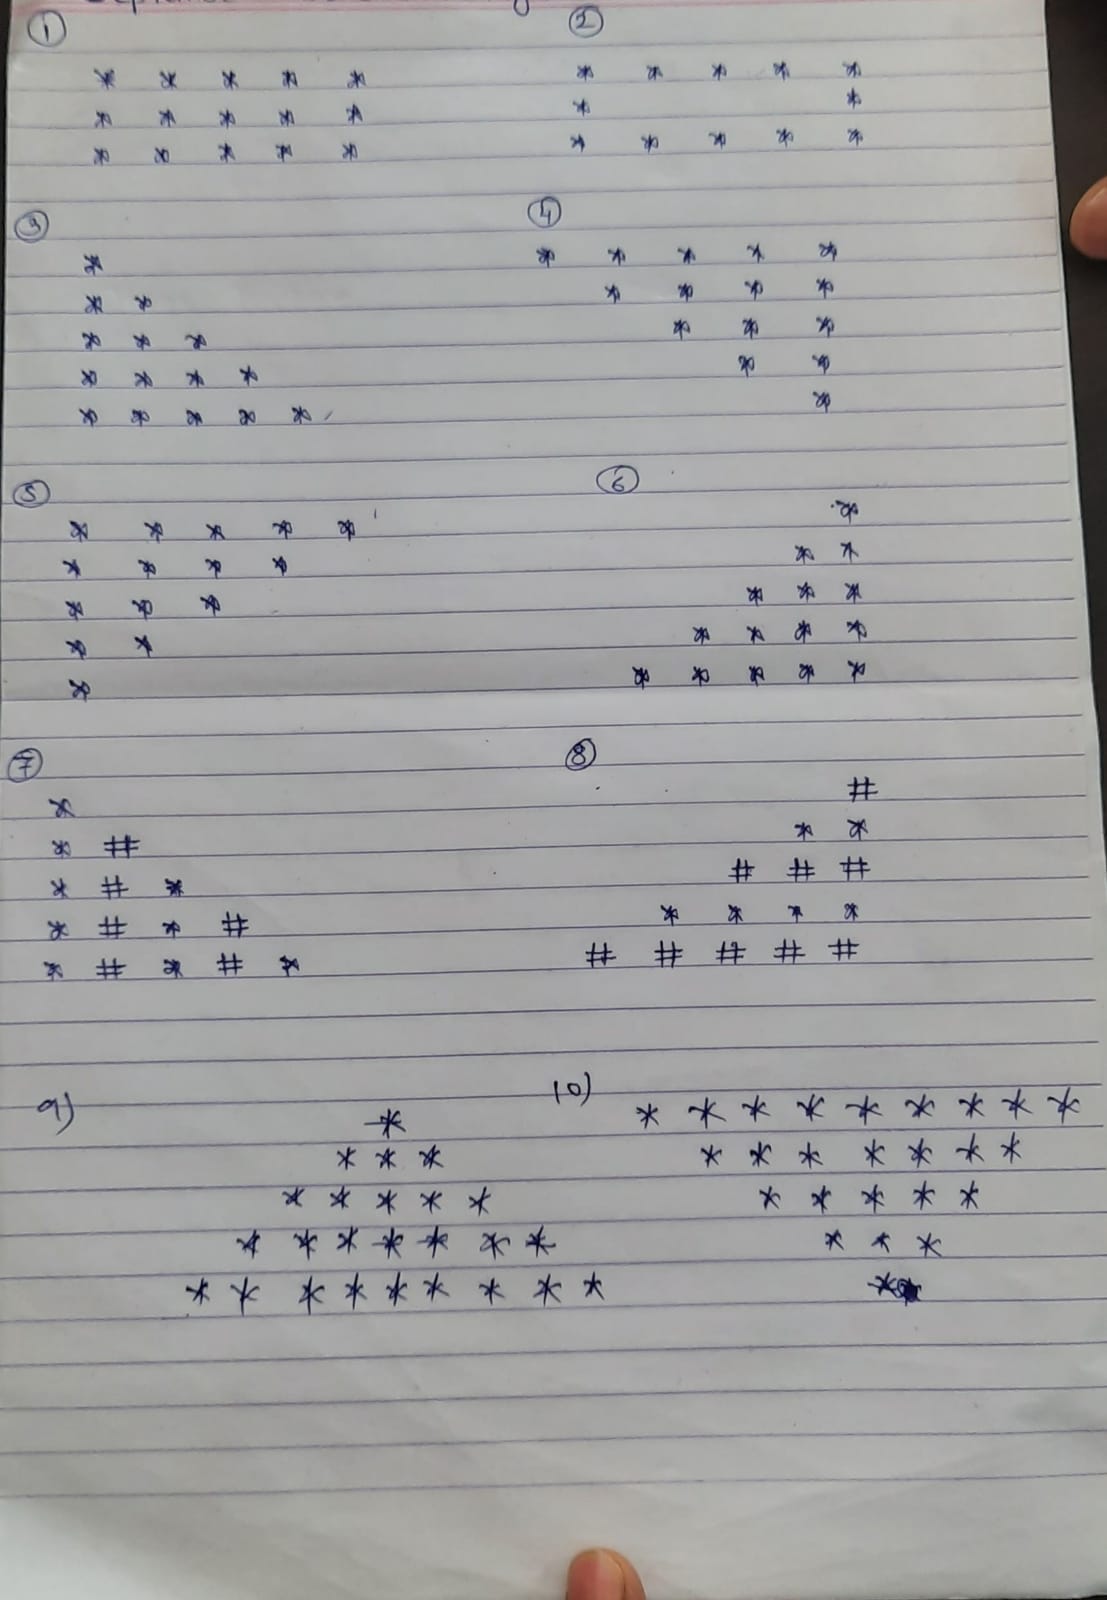 ① ②
* * * * * * * * * *
* * * * * * *
* * * * * * * * * *
③ ④
* * * * * *
* * * * * *
* * * * * *
* * * * * *
* * * * * *
⑤ ⑥
* * * * * *
* * * * * *
* * * * * *
* * * * * *
* * * * * *
⑦ ⑧
* #
* # * *
* # * # # #
* # * # * * * *
* # * # * # # # # #
9) 10)
* * * * * * * * * *
* * * * * * * * * *
* * * * * * * * * *
* * * * * * * * * *
* * * * * * * * * *